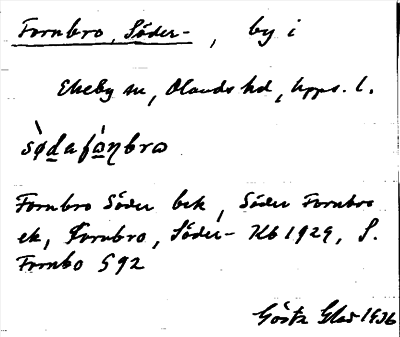 Fornbro, Söder-, by i
Ekeby sn, Olands hd, Upps. l.
sø̀dafòṇbro
Fornbro Söder bek, Söder Fornbro
ek, Fornbro, Söder- Hb 1929, S.
Fornbo S 92
Gösta 1936